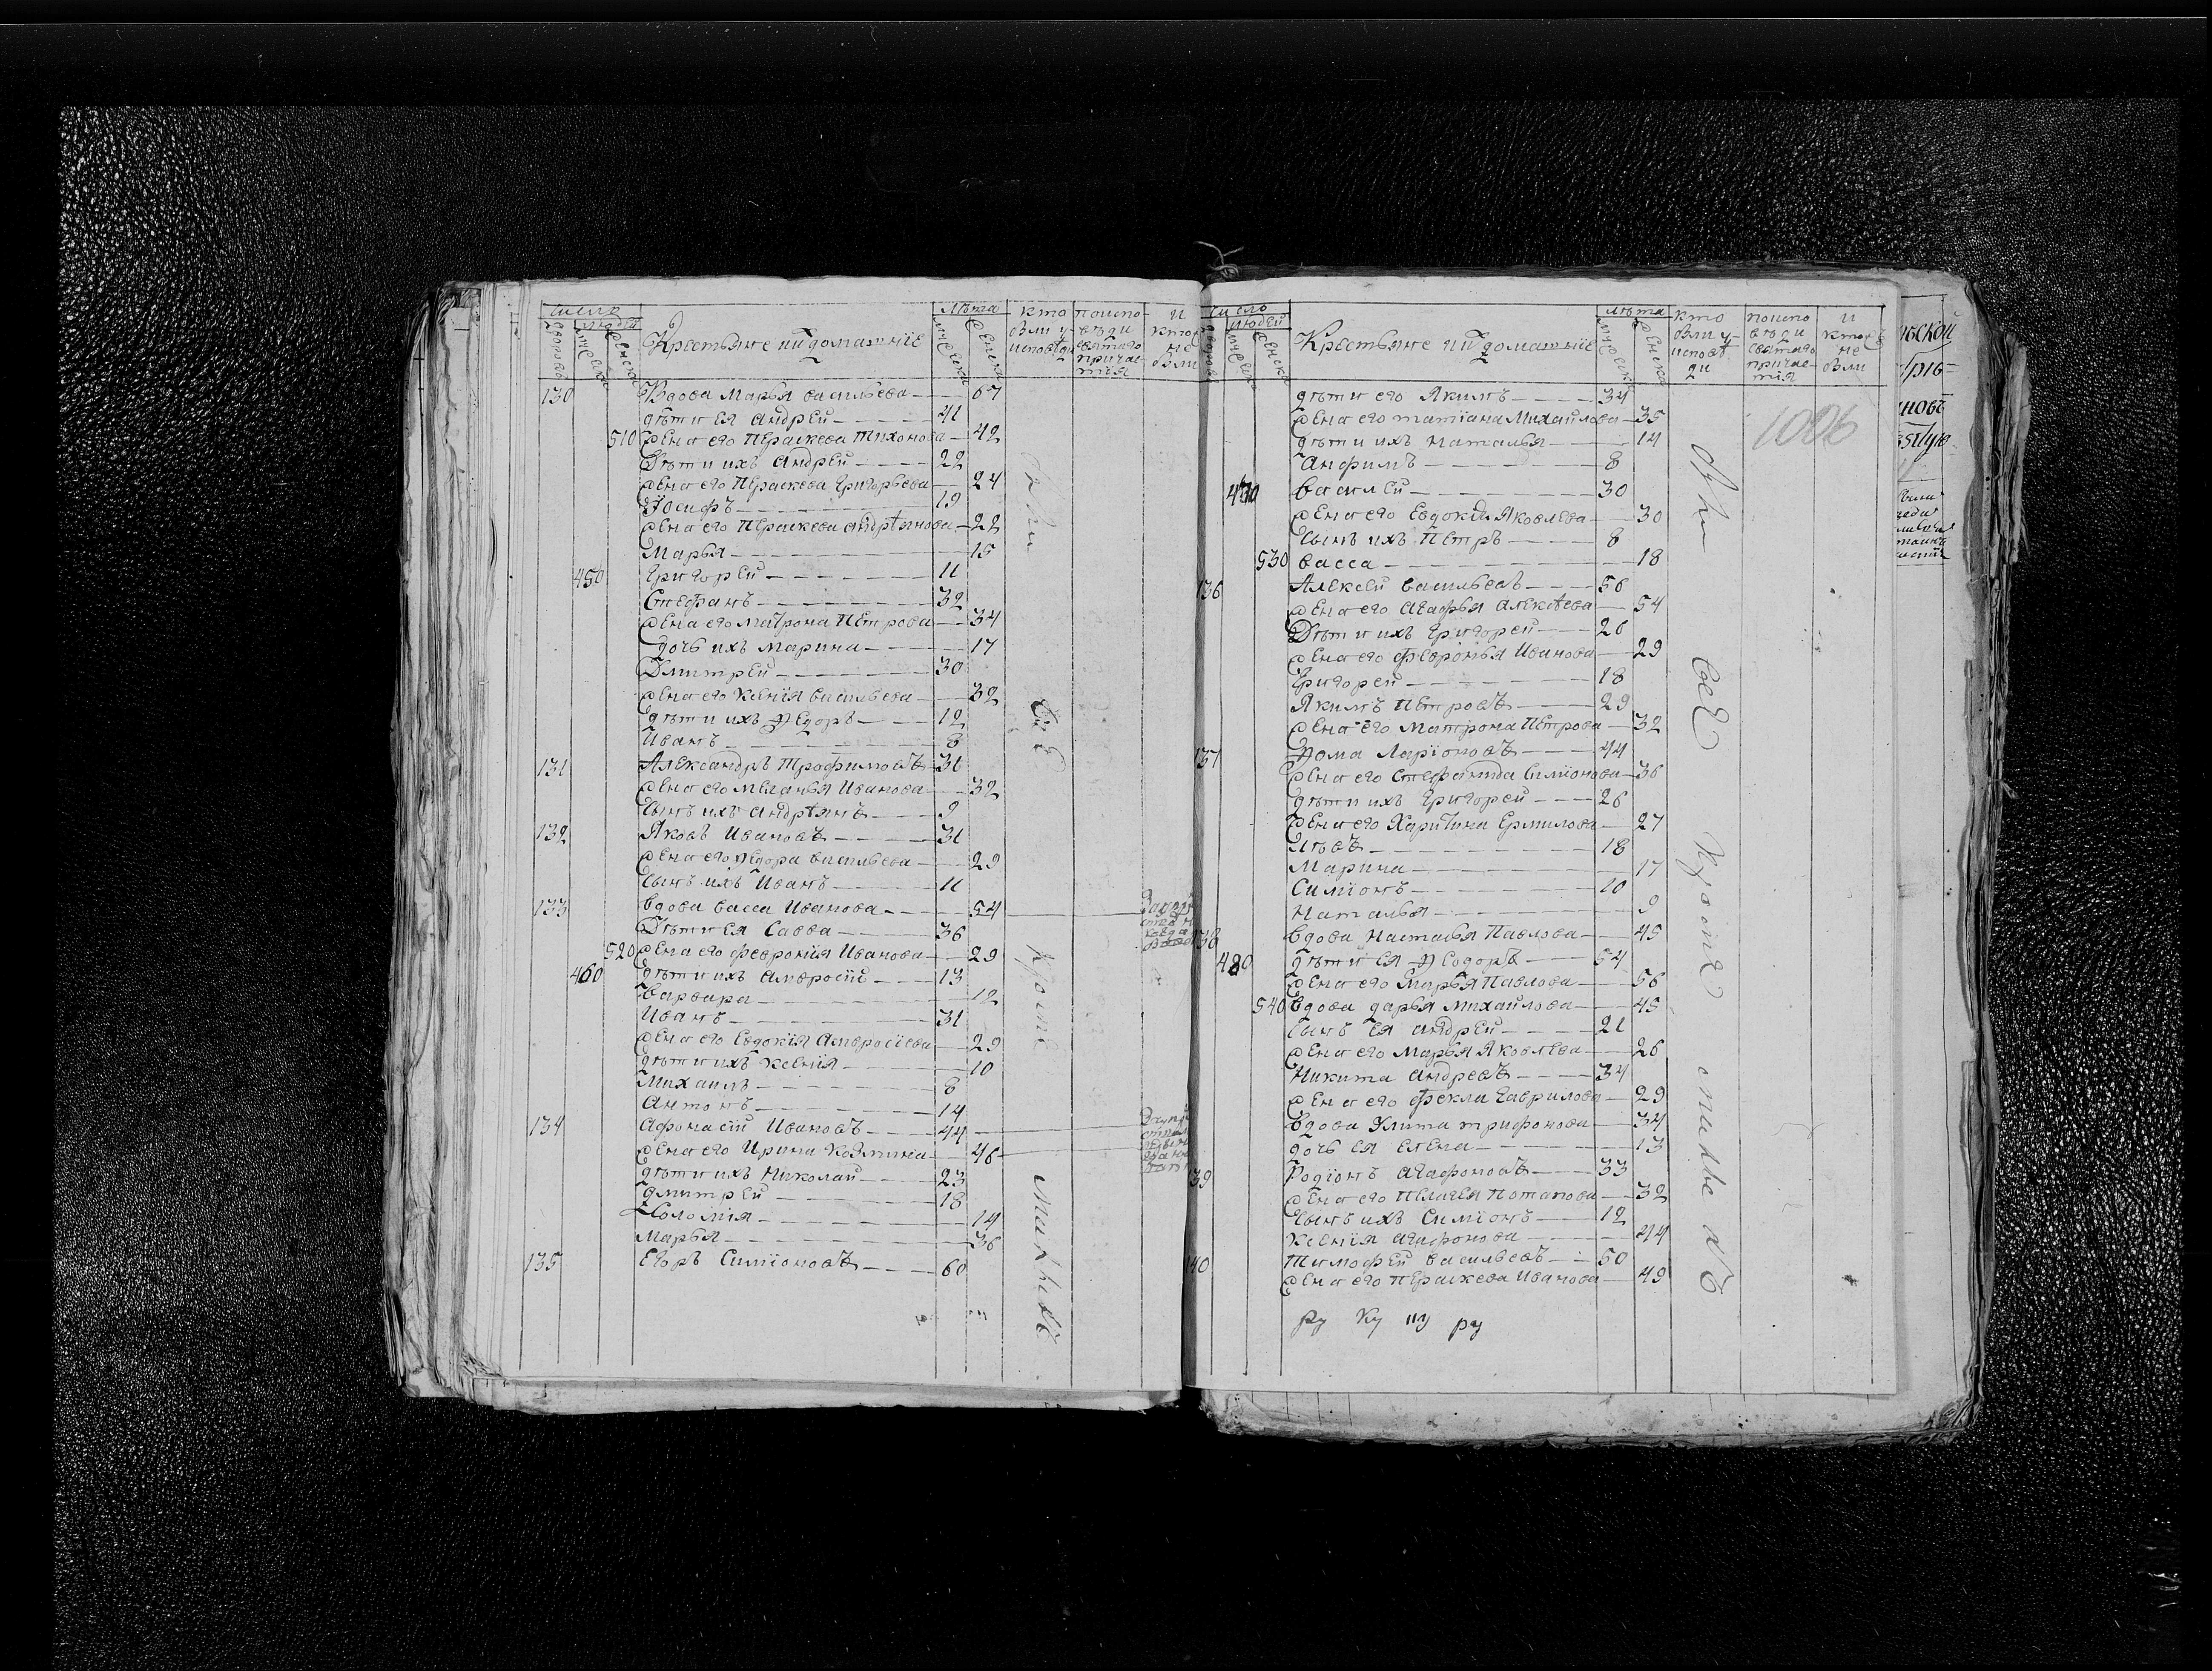 число
людей
дворовъ
мужеска
женска
Крестьяне ихъ домашнїе
лѣта
мужеска
женска
кто были у исповѣди
по исповѣди святаго причастїя
и кто не были
130 Вдова Марья васильева 67
дѣти ея Андрей 41
510 жена его Пераскева Тихонова 42
Дѣти ихъ Андрей 22
жена его Пераскева Григорьева 24
Іосифъ 19
жена его Пераскева андрѣянова 22
Марья 15
450 Григорей 11
Стефанъ 32
жена его Матрона Петрова 34
дочь ихъ Марина 17
Дмитрей 30
жена его Ксенїя васильева 32
дѣти ихъ Ѳедоръ 12
Иванъ 8
131 Александръ Трофимовъ 31
жена его Меланья Иванова 32
сынъ ихъ андрѣянъ 9
132 Яковъ Ивановъ 31
жена его Ѳедора васильева 29
сынъ ихъ Иванъ 11
133 вдова васса Иванова 54
Дѣти ея Савва 36
520 жена его Феврония Иванова 29
460 дѣти ихъ Амвросїй 13
варвара 12
Иванъ 31
жена его Евдокїя Амвросїева 29
дѣти ихъ Ксенїя 10
Михаилъ 8
Антонъ 14
134 Афонасїй Ивановъ 44
жена его Ирина Козмина 46
дѣти ихъ Николай 23
дмитрей 18
Соломїя 14
Марья 36
135 Егоръ Симїоновъ 60
были
всѣ
кромѣ
малыхъ
число
людей
дворовъ
мужеска
женска
Крестьяне ихъ домашнїе
лѣта
мужеска
женска
кто были у исповѣди
по исповѣди святаго причастїя
и кто не были
1006
дѣти его Якимъ 34
жена его татїана Михайлова 35
дѣти ихъ Наталья 14
Анфимъ 8
470 василей 30
жена его Евдокїя Яковлева 30
сынъ ихъ Петръ 8
530 васса 18
136 Алексей васильевъ 56
жена его Агафья алексѣева 54
Дѣти ихъ Григорей 26
жена его Февронья Иванова 29
Григорей 18
Якимъ Петровъ 29
жена его Матрона Петрова 32
137 Ѳома Ларїоновъ 44
жена его Стефанида Симїонова 36
дѣти ихъ Григорей 26
жена его Харитина Ермилова 27
Левъ 18
Марина 17
Симїонъ 10
Наталья 9
138 вдова Настасья Павлова 45
480 дѣти ея Ѳедоръ 54
жена его Марья Павлова 56
540 вдова дарья Михайлова 45
сынъ ея андрей 21
жена его Марья Яковлева 26
Никита андревъ 34
жена его Фекла Гаврилова 29
вдова Улита трифонова 34
дочь ея елена 13
139 Родїонъ агафоновъ 33
жена его Пелагея Потапова 32
сынъ ихъ Симїонъ 12
Ксенїя агафонова 44
140 Тимофей васильевъ 50
жена его Пераскева Иванова 49
ру ку ру
были
всѣ
кромѣ
малыхъ